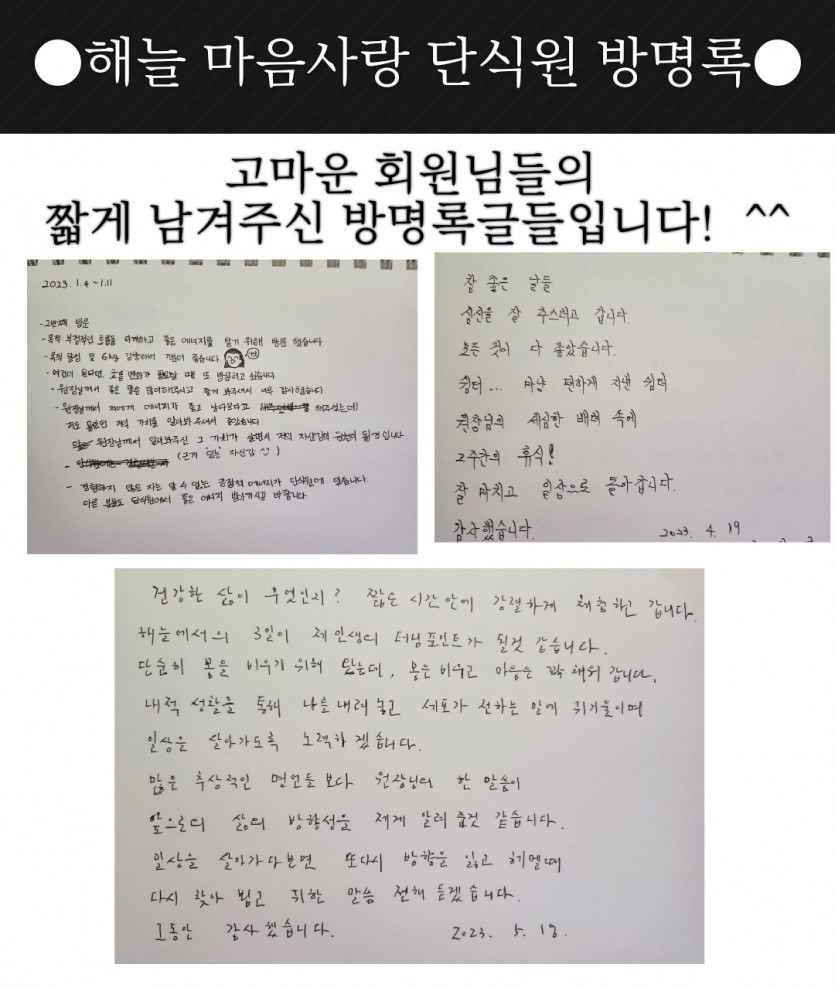 ●해늘 마음사랑 단식원 방명록●
고마운 회원님들의
짧게 남겨주신 방명록글들입니다! ^^
2023. 1.4 ~ 1.11
- 2번째 방문
- 목적 부정적인 흐름을 타개하고 좋은 에너지를 받기 위해 방문 했습니다.
- 목적 달성 및 6kg 감량하여 기분이 좋습니다.
- 여건이 된다면, 호흡 변화가 필요할 때 또 방문하고 싶습니다
- 원장님께서 좋은 말씀 많이해주시고 잘 봐주셔서 너무 감사했습니다.
- 원장님께서 저에게 에너지가 좋고 남다르다고 해주셨는데
저도 몰랐던 저의 가치를 알려봐 주셔서 좋았습니다.
원장님께서 알려봐주신 그 가치가 살면서 저의 자신감의 원천이 될 것 입니다
(근거 '있는' 자신감)
- 경험하지 않은 자는 알 수 없는 긍정적 에너지가 단식원에 있습니다.
다른 분들도 단식원에서 좋은 에너지 받아가시길 바랍니다.
참 좋은 날들
심신을 잘 추스리고 갑니다.
모든 것이 다 좋았습니다.
쉼터... 마냥 편하게 지낸 쉼터
원장님의 세심한 배려 속에
2주간의 휴식!
잘 마치고 일상으로 돌아갑니다.
감사했습니다.
2023. 4. 19
건강한 삶이 무엇인지? 짧은 시간안에 강렬하게 체험하고 갑니다.
해늘에서의 3일이 제 인생의 터닝포인트가 될것 같습니다.
단순히 몸을 비우기 위해 왔는데, 몸은 비우고 마음은 꽉 채워 갑니다.
내적 성찰을 통해 나를 내려 놓고 세포가 전하는 말에 귀기울이며
일상을 살아가도록 노력하겠습니다.
많은 추상적인 명언들 보다 원장님의 한 말씀이
앞으로의 삶의 방향성을 제게 알려 줄것 같습니다.
일상을 살아가다보면 또다시 방향을 잃고 헤멜때
다시 찾아 뵙고 귀한 말씀 전해 듣겠습니다.
그동안 감사했습니다. 2023. 5. 18.